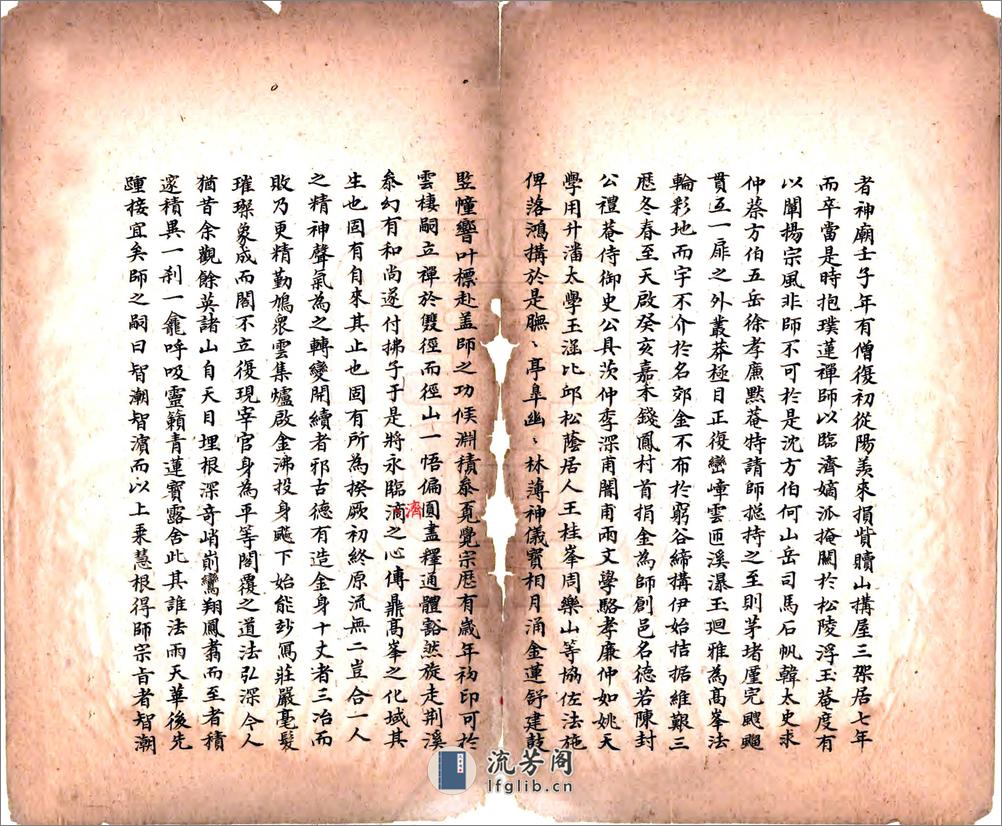 者神廟壬子年有僧復初從陽羨來捐貲贖山搆屋三架居七年
而卒當是時抱璞蓮禪師以臨濟嫡派掩關於松陵浮玉菴度有
以闡揚宗風非師不可於是沈方伯何山岳司馬石帆韓太史求
仲蔡方伯五岳徐孝廉黙菴特請師摠持之至則茅堵厪完颼飀
貫五一扉之外叢莽極目正復巒嶂雲迊溪瀑玉廻雅為高峯法
輪彩地而字不介於名郊金不布於窮谷締搆伊始拮据維艱三
歷冬春至天啟癸亥嘉禾錢鳳村首捐金為師創邑名德若陳封
公禮菴侍御史公具茨仲李深甫闇甫兩文學駱孝廉仲如姚天
學用升潘太學玉涵比邱松蔭居人王桂峯周樂山等協佐法施
俾落鴻搆於是膴〻亭皐幽〻林薄神儀寳相月涌金蓮舒建鼓
竪幢響叶標赴盖師之功候淵積叅覔覺宗歷有歲年初印可於
雲棲嗣立禪於雙徑而徑山一悟偏圓盡釋通體豁然旋走荆溪
叅幻有和尚遂付拂子于是將永臨濟之心傳鼎高峯之化域其
生也固有自來其止也固有所為揆厥初終原流無二豈合一人
之精神聲氣為之轉變開續者邪古德有造金身十丈者三冶而
敗乃更精勤鳩衆雲集爐啟金沸投身飈下始能玅寫莊嚴毫髪
璀璨象成而閣不立復現宰官身為平等閣覆之道法弘深今人
猶昔余觀餘英諸山自天目埋根深竒峭崱鸞翔鳳翥而至者積
邃積異一刹一龕呼吸靈籟青蓮寳露舍此其誰法雨天華後先
踵接宜矣師之嗣曰智潮智濵而以上乗慧根得師宗旨者智潮
流芳阁
lfglib.cn